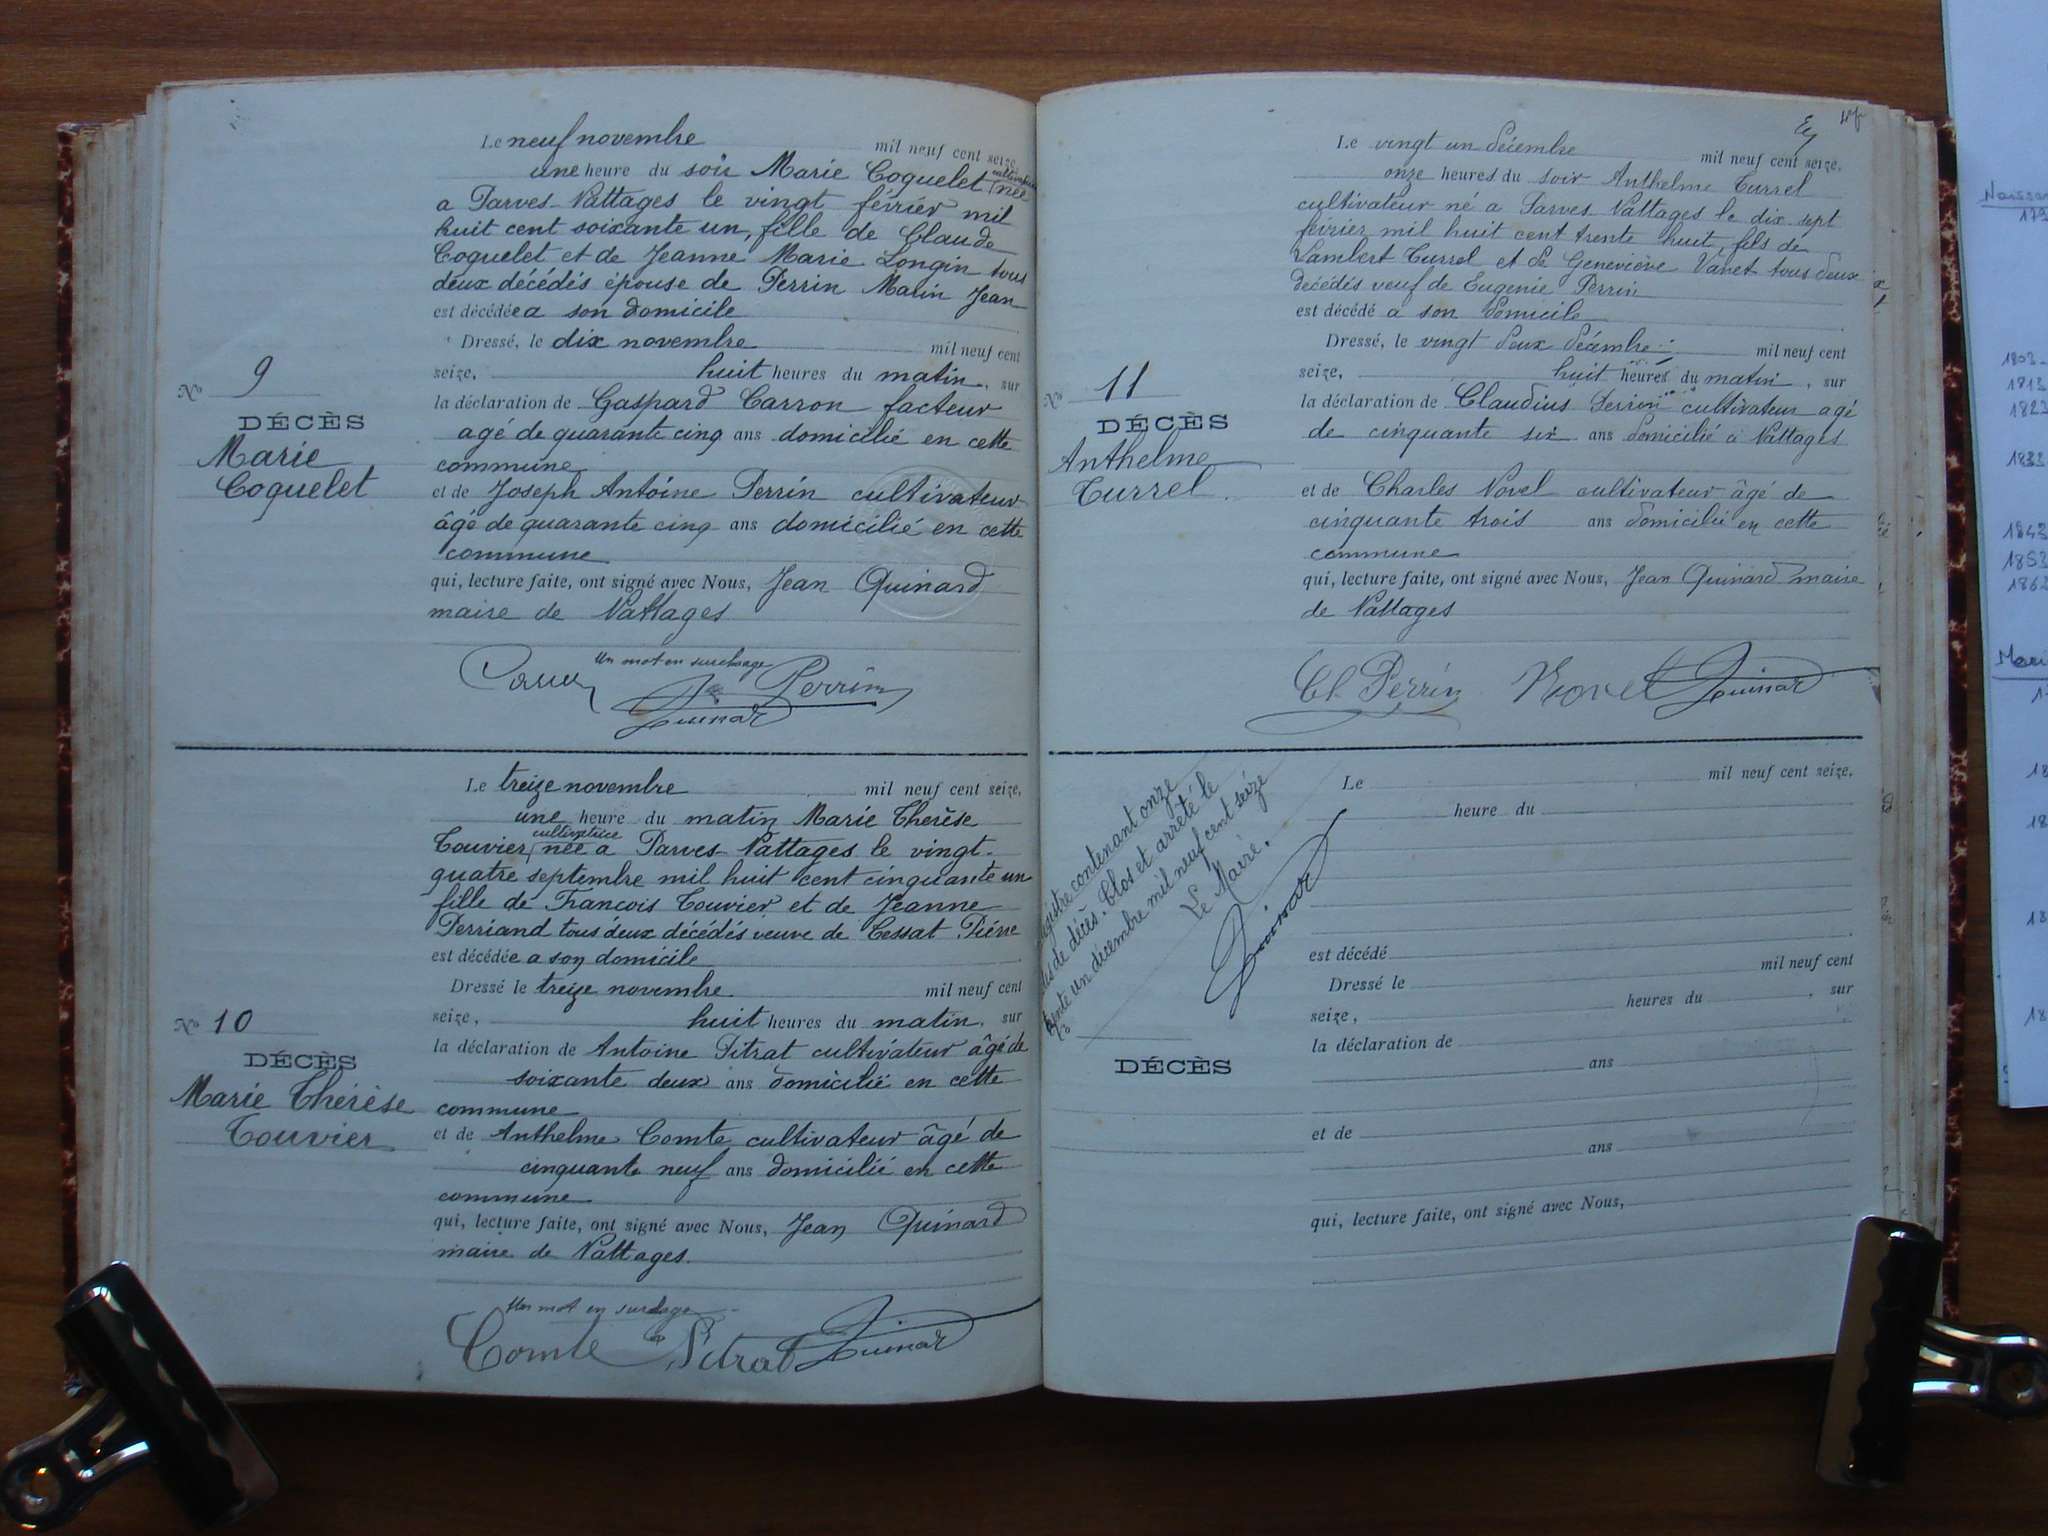 Le neuf novembre mil neuf cent seize,
une heure du soir Marie Coquelet cultivatrice née
a Parves-Nattages le vingt février mil
huit cent soixante un, fille de Claude
Coquelet et de Jeanne Marie Longin tous
deux décédés épouse de Perrin Marin Jean
est décédée a son domicile
Dressé, le dix novembre mil neuf cent
seize, huit heures du matin, sur
No 9
la déclaration de Gaspard Carron facteur
DÉCÈS
agé de quarante cinq ans domicilié en cette
Marie
commune
Coquelet
et de Joseph Antoine Perrin cultivateur
âgé de quarante cinq ans domicilié en cette
commune
qui, lecture faite, ont signé avec Nous, Jean Quinard
maire de Nattages
Un mot en surcharge
Perrin
Quinard
Le treize novembre mil neuf cent seize,
une heure du matin Marie Therèse
cultivatrice
Touvier, née a Parves-Nattages le vingt-
quatre septembre mil huit cent cinquante un
fille de Francois Touvier et de Jeanne
Perriand tous deux décédés veuve de Cessat Piérre
est décédée a son domicile
Dressé le treize novembre mil neuf cent
No 10
seize, huit heures du matin, sur
DÉCÈS
la déclaration de Antoine Pitrat cultivateur âgé de
Marie Thérèse
soixante deux ans domicilié en cette
Touvier
commune
et de Anthelme Comte cultivateur âgé de
cinquante neuf ans domicilié en cette
commune
qui, lecture faite, ont signé avec Nous, Jean Quinard
maire de Nattages.
Un mot en surchage
Comte Pitrat Quinard
Le vingt un décembre mil neuf cent seize,
onze heures du soir Anthelme Turrel
cultivateur né a Parves-Nattages le dix sept
février mil huit cent trente huit, fils de
Lambert Turrel et de Geneviève Vanet tous deux
décédés veuf de Eugenie Perrin
est décédé a son domicile
Dressé, le vingt deux décembre mil neuf cent
seize, huit heures du matin, sur
No 11
la déclaration de Claudius Perrin cultivateur agé
DÉCÈS
de cinquante six ans domicilié à Nattages
Anthelme
Turrel
et de Charles Novel cultivateur âgé de
cinquante trois ans domicilié en cette
commune
qui, lecture faite, ont signé avec Nous, Jean Quinard maire
de Nattages
Cl. Perrin Novel Quinard
registre contenant onze
de décès. Clos et arrêté le
trente un décembre mil neuf cent seize
Le Maire.
Quinard
Le mil neuf cent seize,
heure du
est décédé
Dressé le mil neuf cent
seize, heures du , sur
la déclaration de
DÉCÈS
ans
et de
ans
qui, lecture faite, ont signé avec Nous,
1803
1813
1823
1833
1843
1853
1862